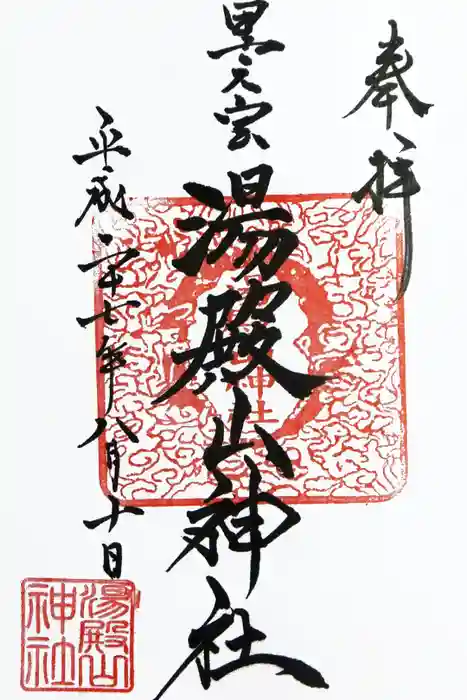 奉拝
里之宮
湯殿山神社
平成二十七年八月十日
湯殿山
神社